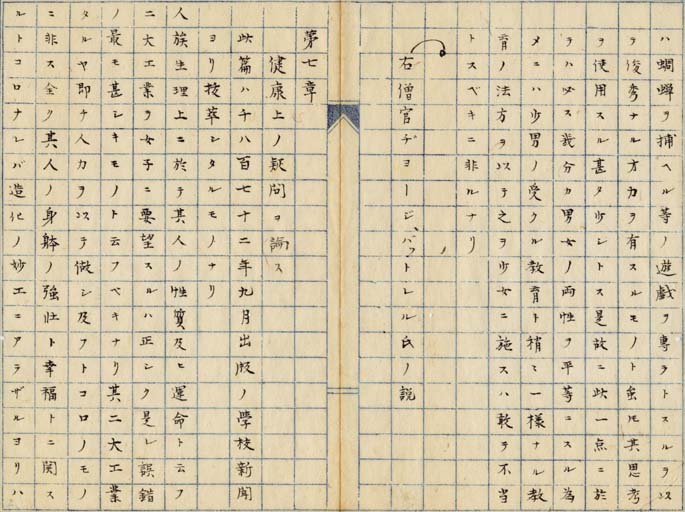 ハ蜩蟬ヲ捕ヘル等ノ遊戯ヲ専ラトスルヲ以
テ俊秀ナル才力ヲ有スルモノト虽モ其思考
ヲ使用スル甚タ少シトス是故ニ此一点ニ於
テハ必ス幾分カ男女ノ両性ヲ平等ニスル為
メニハ少男ノ受クル教育ト稍〻一様ナル教
育ノ法方ヲ以テ之ヲ少女ニ施スハ敢テ不当
トスベキニ非ルナリ
右僧官ヂョージ、バットレル氏ノ説
第七章
健康上ノ疑問ヲ論ス
此篇ハ千八百七十二年九月出版ノ學校新聞
ヨリ抜萃シタルモノナリ
人族生理上ニ於テ其人ノ性質及ヒ運命ト云フ
二大工業ヲ女子ニ要望スルハ正シク是レ誤錯
ノ最モ甚シキモノト云フベキナリ其二大工業
タルヤ即チ人力ヲ以テ做シ及フトコロノモノ
ニ非ス全ク其人ノ身躰ノ強壮ト幸福トニ関ス
ルトコロナレバ造化ノ妙工ニアラザルヨリハ